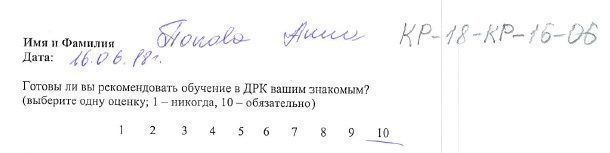 Имя и Фамилия Попова Анна КР-18-КР-15-06
Дата: 16.06.18г.
Готовы ли вы рекомендовать обучение в ДРК вашим знакомым?
(выберите одну оценку; 1 – никогда, 10 – обязательно)
1 2 3 4 5 6 7 8 9 10